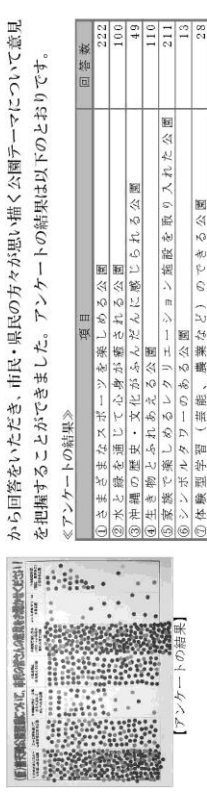 から回答をいただき、市民・県民の方々が思い描く公園テーマについて意見
を把握することができました。アンケートの結果は以下のとおりです。
≪アンケートの結果≫
項目 回答数
①さまざまなスポーツを楽しめる公園 222
②水と緑を通じて心身が癒される公園 100
③沖縄の歴史・文化がふんだんに感じられる公園 49
④生き物とふれあえる公園 110
⑤家族で楽しめるレクリエーション施設を取り入れた公園 211
⑥シンボルタワーのある公園 13
⑦体験型学習（芸能、農業など）のできる公園 28
【アンケートの結果】